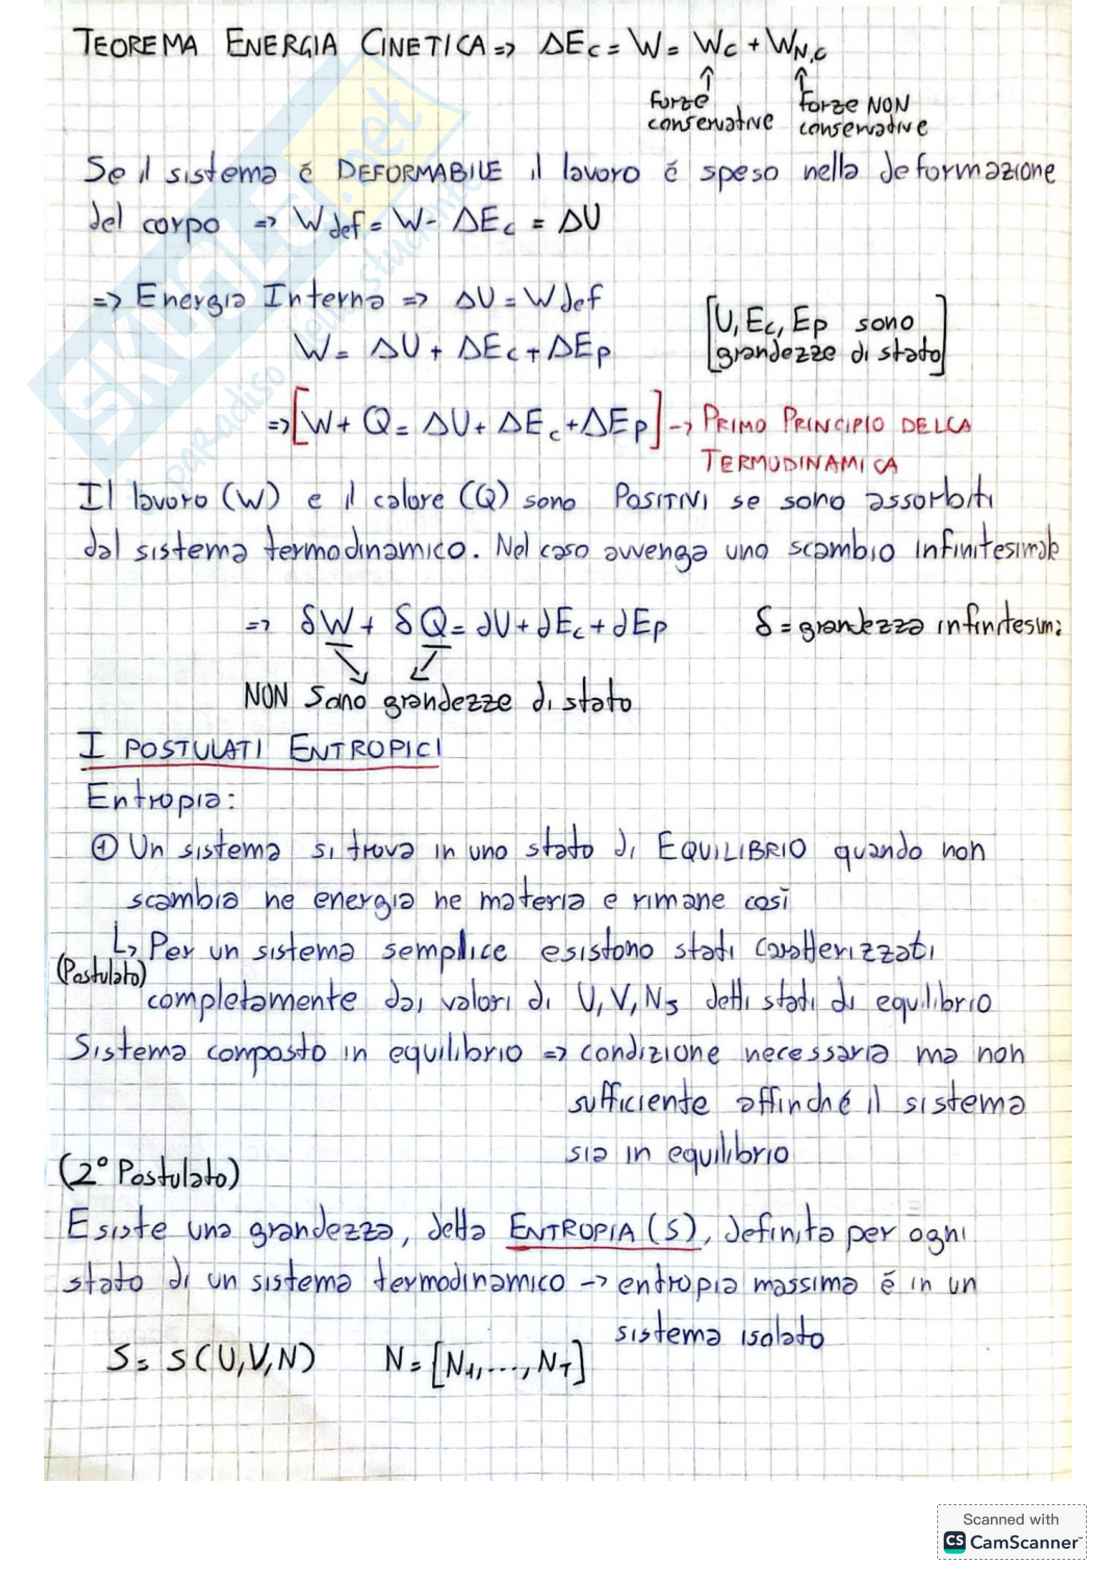 TEOREMA ENERGIA CINETICA => ΔEc = W = Wc + WN,C
forze conservative
forze NON conservative
Se il sistema é DEFORMABILE il lavoro é speso nella deformazione
del corpo => Wdef = W - ΔEc = ΔU
=> Energia Interna => ΔU = Wdef
W = ΔU + ΔEc + ΔEp
[U, Ec, Ep sono
grandezze di stato]
=> [W + Q = ΔU + ΔEc + ΔEp] -> PRIMO PRINCIPIO DELLA
TERMODINAMICA
Il lavoro (W) e il calore (Q) sono POSITIVI se sono assorbiti
dal sistema termodinamico. Nel caso avvenga uno scambio infinitesimale
=> δW + δQ = dU + dEc + dEp
δ = grandezza infinitesima
NON sono grandezze di stato
I POSTULATI ENTROPICI
Entropia:
① Un sistema si trova in uno stato di EQUILIBRIO quando non
scambia ne energia ne materia e rimane così
↳ Per un sistema semplice esistono stati caratterizzati
(Postulato)
completamente dai valori di U, V, Ns detti stati di equilibrio
Sistema composto in equilibrio => condizione necessaria ma non
sufficiente affinché il sistema
sia in equilibrio
(2° Postulato)
Esiste una grandezza, detta ENTROPIA (S), definita per ogni
stato di un sistema termodinamico -> entropia massima é in un
sistema isolato
S = S(U,V,N) N = [N1, ..., NT]
SKUOLA.net
paradiso dello studente
Scanned with
CS CamScanner